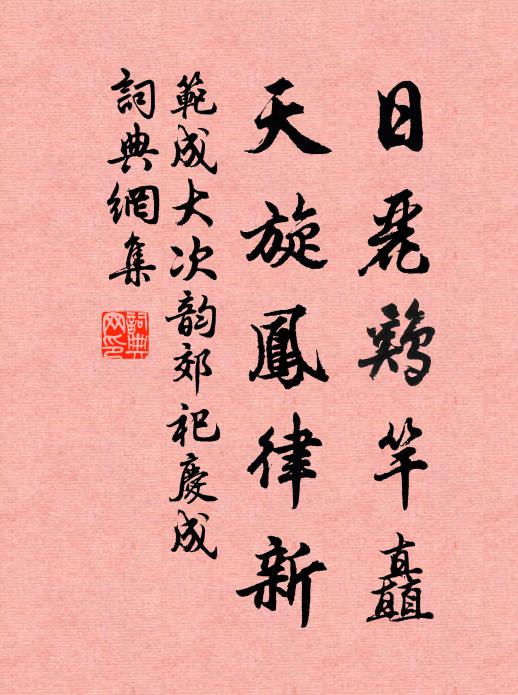 日麗鷄竿矗
天旋鳳律新
範成大次韵郊祀慶成
詞典網集
詞典網印